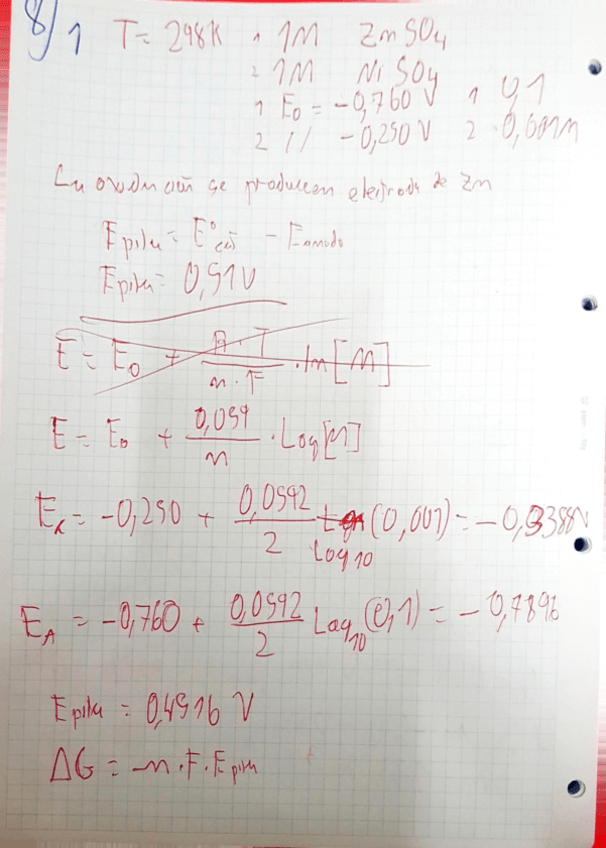 8/1 T = 298K 1 1M ZnSO4
2 1M NiSO4
1 E0 = -0,760 V 1 0,1
2 // -0,250 V 2 0,001M
La oxidación se produce en electrodo de Zn
Epila = E°cat - Eanodo
Epila = 0,51V
E = E0 + R·T / n·F · ln[M]
E = E0 + 0,059 / n · Log[M]
Ek = -0,250 + 0,0592 / 2 Log10 (0,001) = -0,3388V
EA = -0,760 + 0,0592 / 2 Log10 (0,1) = -0,7896
Epila = 0,4516 V
ΔG = -n·F·Epila